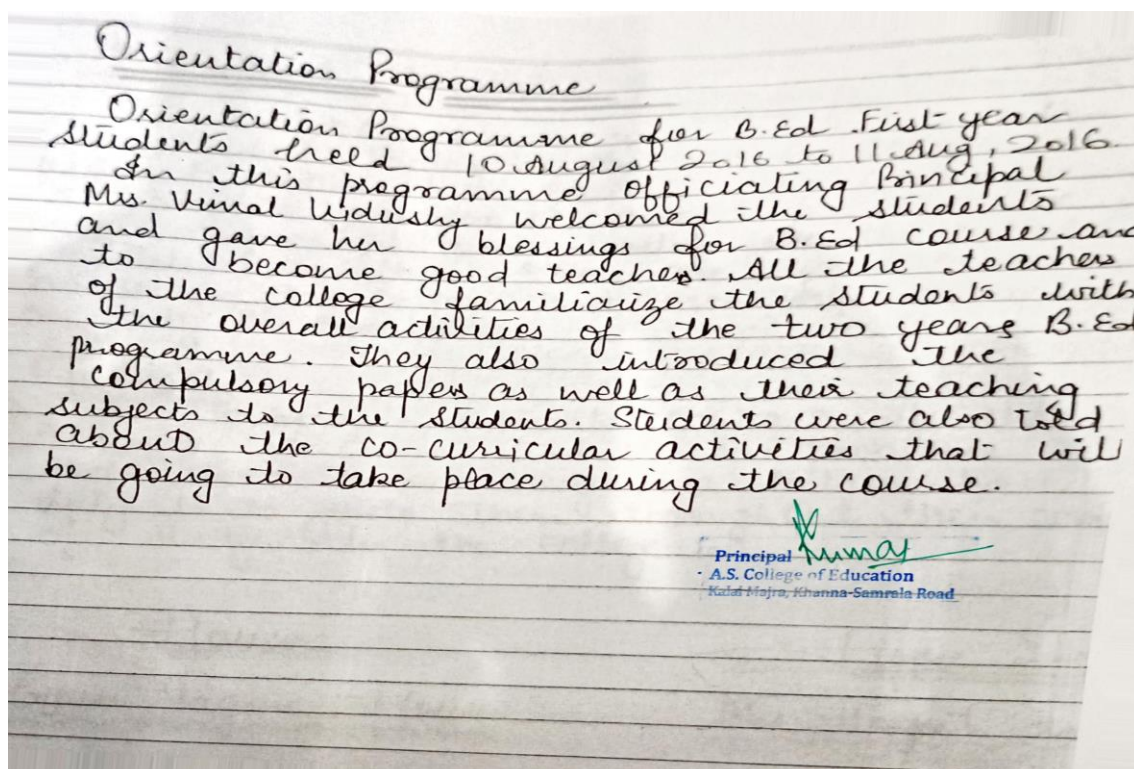 Orientation Programme
Orientation Programme for B.Ed. First year
students held 10 August 2016 to 11 Aug, 2016.
In this programme officiating Principal
Mrs. Vimal Vidushy welcomed the students
and gave her blessings for B.Ed course and
to become good teachers. All the teachers
of the college familiarize the students with
the overall activities of the two years B.Ed
programme. They also introduced the
compulsory papers as well as their teaching
subjects to the students. Students were also told
about the co-curricular activities that will
be going to take place during the course.
Kumar
Principal
A.S. College of Education
Kalal Majra, Khanna-Samrala Road